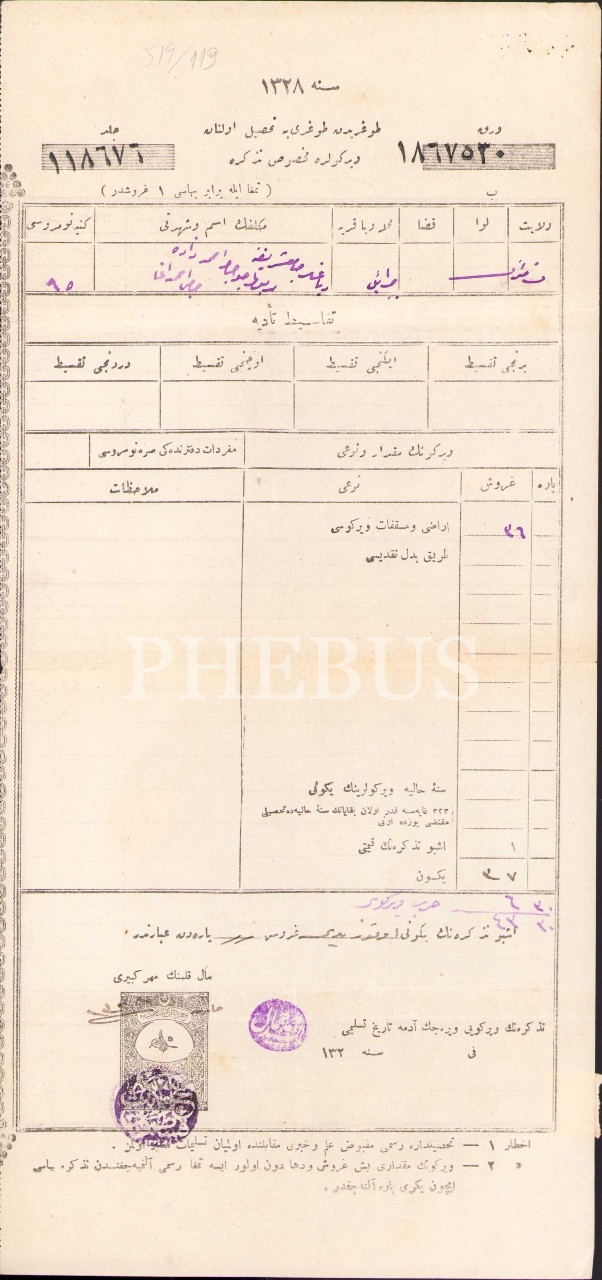 519/119
سنه ١٣٢٨
ورق
طوغریدن طوغری یه تحصیل اولنان
جلد
١٨٦٧٥٣٠
ویركولره مخصوص تذكره
١١٨٦٧٦
ب
( تمغا ایله برابر بهاسی ١ غروشدر )
ولایت
لوا
قضا
محله ویا قریه
مكلفك اسم وشهرتی
كنیه نومروسی
٩٥
تقاسیط تأدیه
برنجی تقسیط
ایكنجی تقسیط
اوچنجی تقسیط
دردنجی تقسیط
ویركونك مقدار ونوعی
مفردات دفترنده كی صره نومروسی
پاره
غروش
نوعی
ملاحظات
٣٦
اراضی ومسقفات ویركوسی
طریق بدل نقدیسی
PHEBUS
سنۀ حالیه ویركولرینك یكونی
٣٢٣ غایه سنه قدر اولان بقایانك سنۀ حالیه ده تحصیلی
مقتضی یوزده اونی
١
اشبو تذكره نك قیمتی
٣٧
یكون
حرب ویركوسی
اشبو تذكره نك یكونی اوتوز یدی غروش پاره دن عبارتدر
مال قلمنك مهر كبیری
تذكره نك ویركویی ویره جك آدمه تاریخ تسلیمی
فی
سنه ١٣٢
اخطار ١ — تحصیلداره رسمی مقبوض علم وخبری مقابلنده اولمیان تسلیمات
» ٢ — ویركونك مقداری بش غروش ودها دون اولور ایسه تمغا رسمی آلنمیه جغندن تذكره بهاسی
ایچون یكرمی پاره آلنه جقدر .